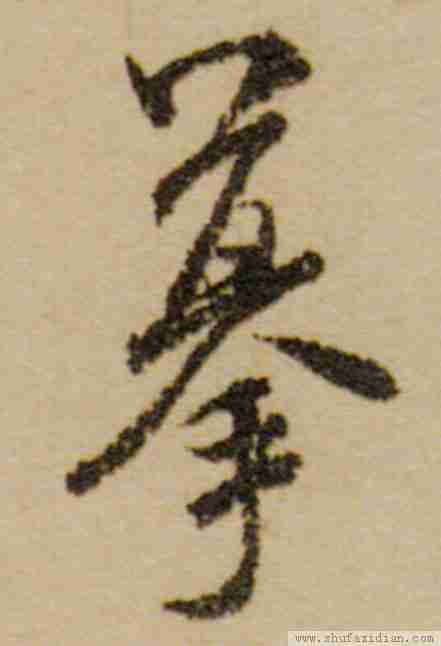 摹
www.shufazidian.com